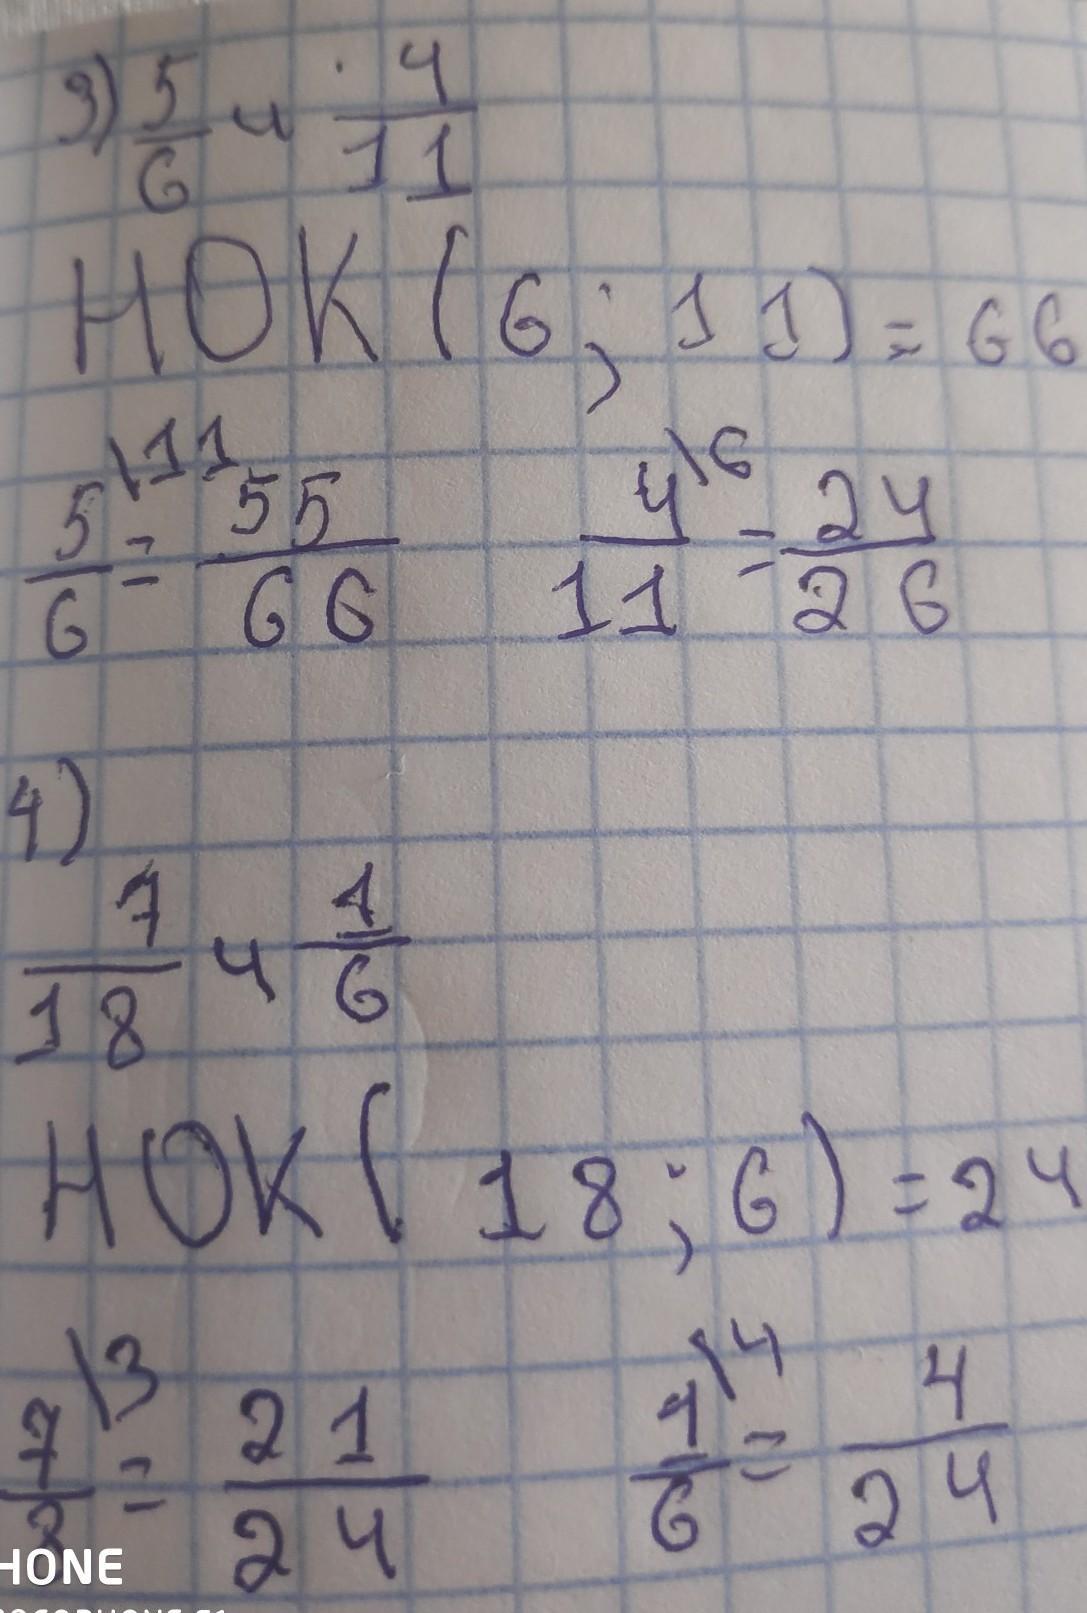 3) 5/6 и 4/11
НОК(6; 11) = 66
5/6 \11 = 55/66   4/11 \6 = 24/26
4)
7/18 и 1/6
НОК(18; 6) = 24
7/8 \3 = 21/24   1/6 \4 = 4/24
HONE